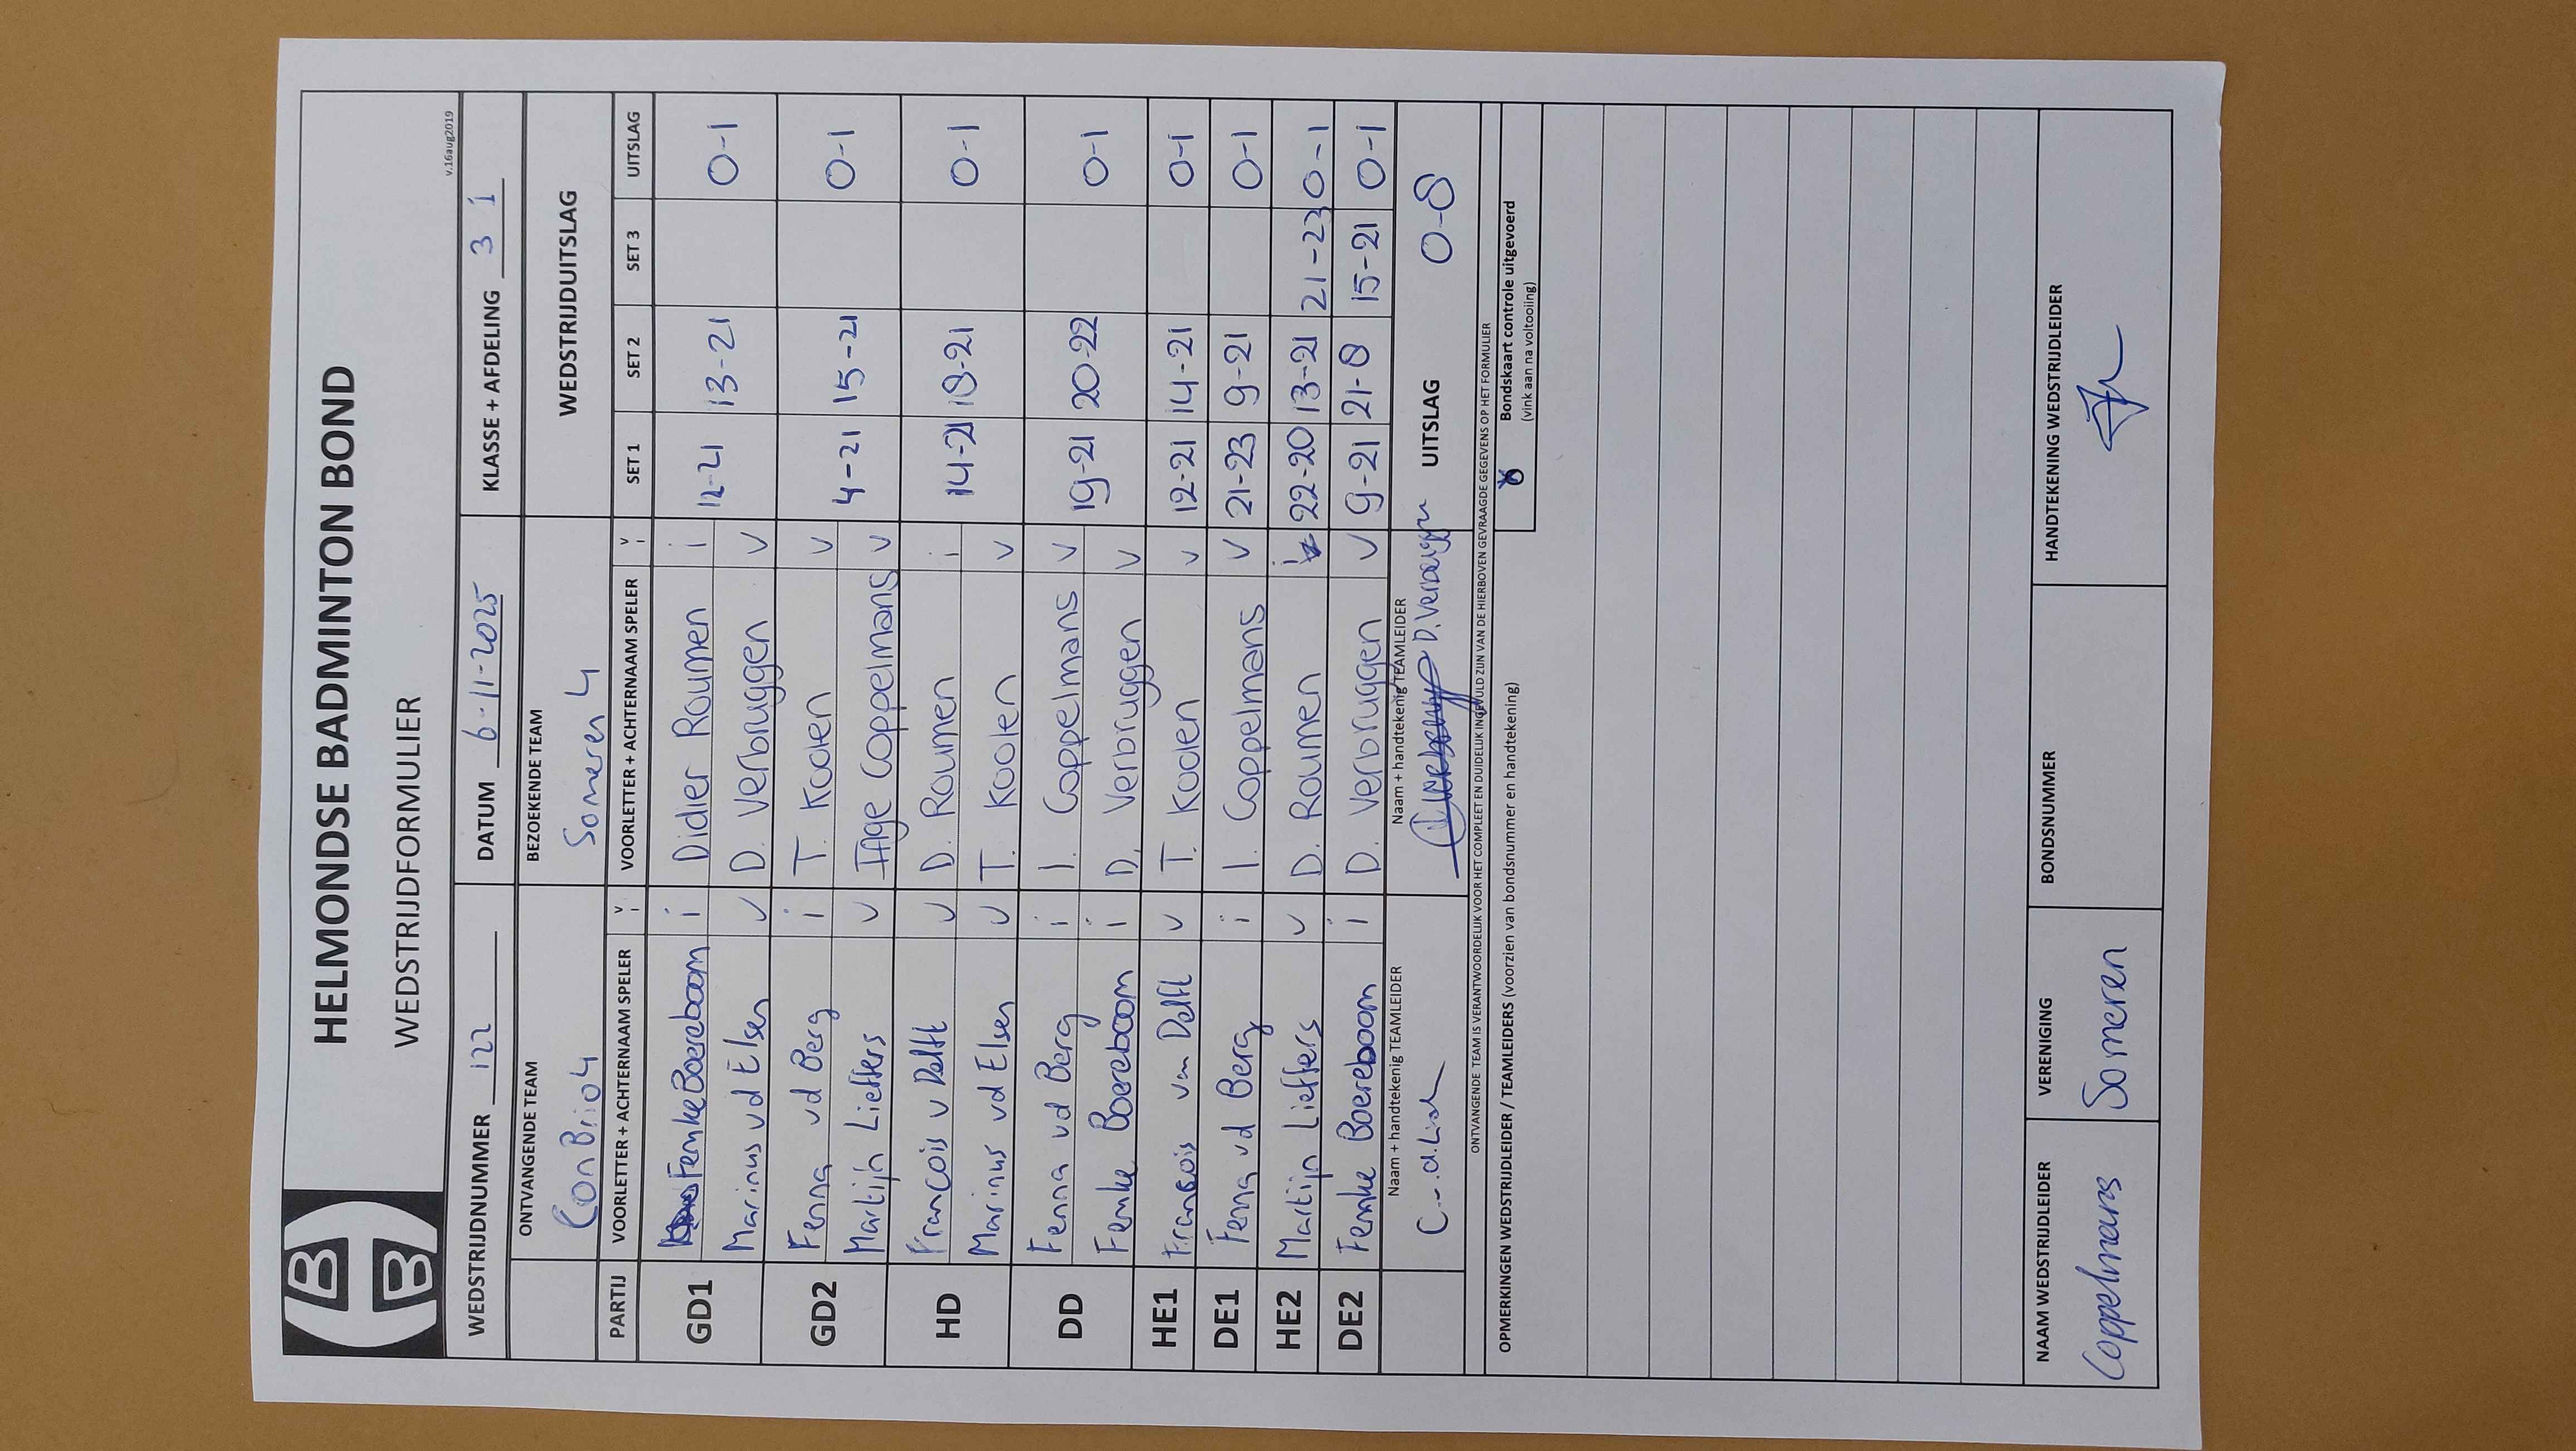 HELMONDSE BADMINTON BOND
WEDSTRIJDFORMULIER
v.16aug2019
WEDSTRIJDNUMMER 122 DATUM 6-11-2025 KLASSE + AFDELING 3 1
ONTVANGENDE TEAM BEZOEKENDE TEAM WEDSTRIJDUITSLAG
Con Brio 4 Someren 4
PARTIJ VOORLETTER + ACHTERNAAM SPELER v i VOORLETTER + ACHTERNAAM SPELER v i SET 1 SET 2 SET 3 UITSLAG
GD1 Femke Boereboom i Didier Roumen i 12-21 13-21 0-1
Marinus vd Elsen v D. Verbruggen v
GD2 Fenna vd Berg i T. Koolen v 4-21 15-21 0-1
Martijn Lieffers v Inge Coppelmans v
HD Francois v Delft v D. Roumen i 14-21 18-21 0-1
Marinus vd Elsen v T. Koolen v
DD Fenna vd Berg i I. Coppelmans v 19-21 20-22 0-1
Femke Boereboom i D. Verbruggen v
HE1 Francois van Delft v T. Koolen v 12-21 14-21 0-1
DE1 Fenna vd Berg i I. Coppelmans v 21-23 9-21 0-1
HE2 Martijn Lieffers v D. Roumen i 22-20 13-21 21-23 0-1
DE2 Femke Boereboom i D. Verbruggen v 9-21 21-8 15-21 0-1
Naam + handtekenig TEAMLEIDER Naam + handtekenig TEAMLEIDER UITSLAG 0-8
D. Verbruggen
ONTVANGENDE TEAM IS VERANTWOORDELIJK VOOR HET COMPLEET EN DUIDELIJK INGEVULD ZIJN VAN DE HIERBOVEN GEVRAAGDE GEGEVENS OP HET FORMULIER
OPMERKINGEN WEDSTRIJDLEIDER / TEAMLEIDERS (voorzien van bondsnummer en handtekening)
Bondskaart controle uitgevoerd
(vink aan na voltooiing)
NAAM WEDSTRIJDLEIDER VERENIGING BONDSNUMMER HANDTEKENING WEDSTRIJDLEIDER
Coppelmans Someren